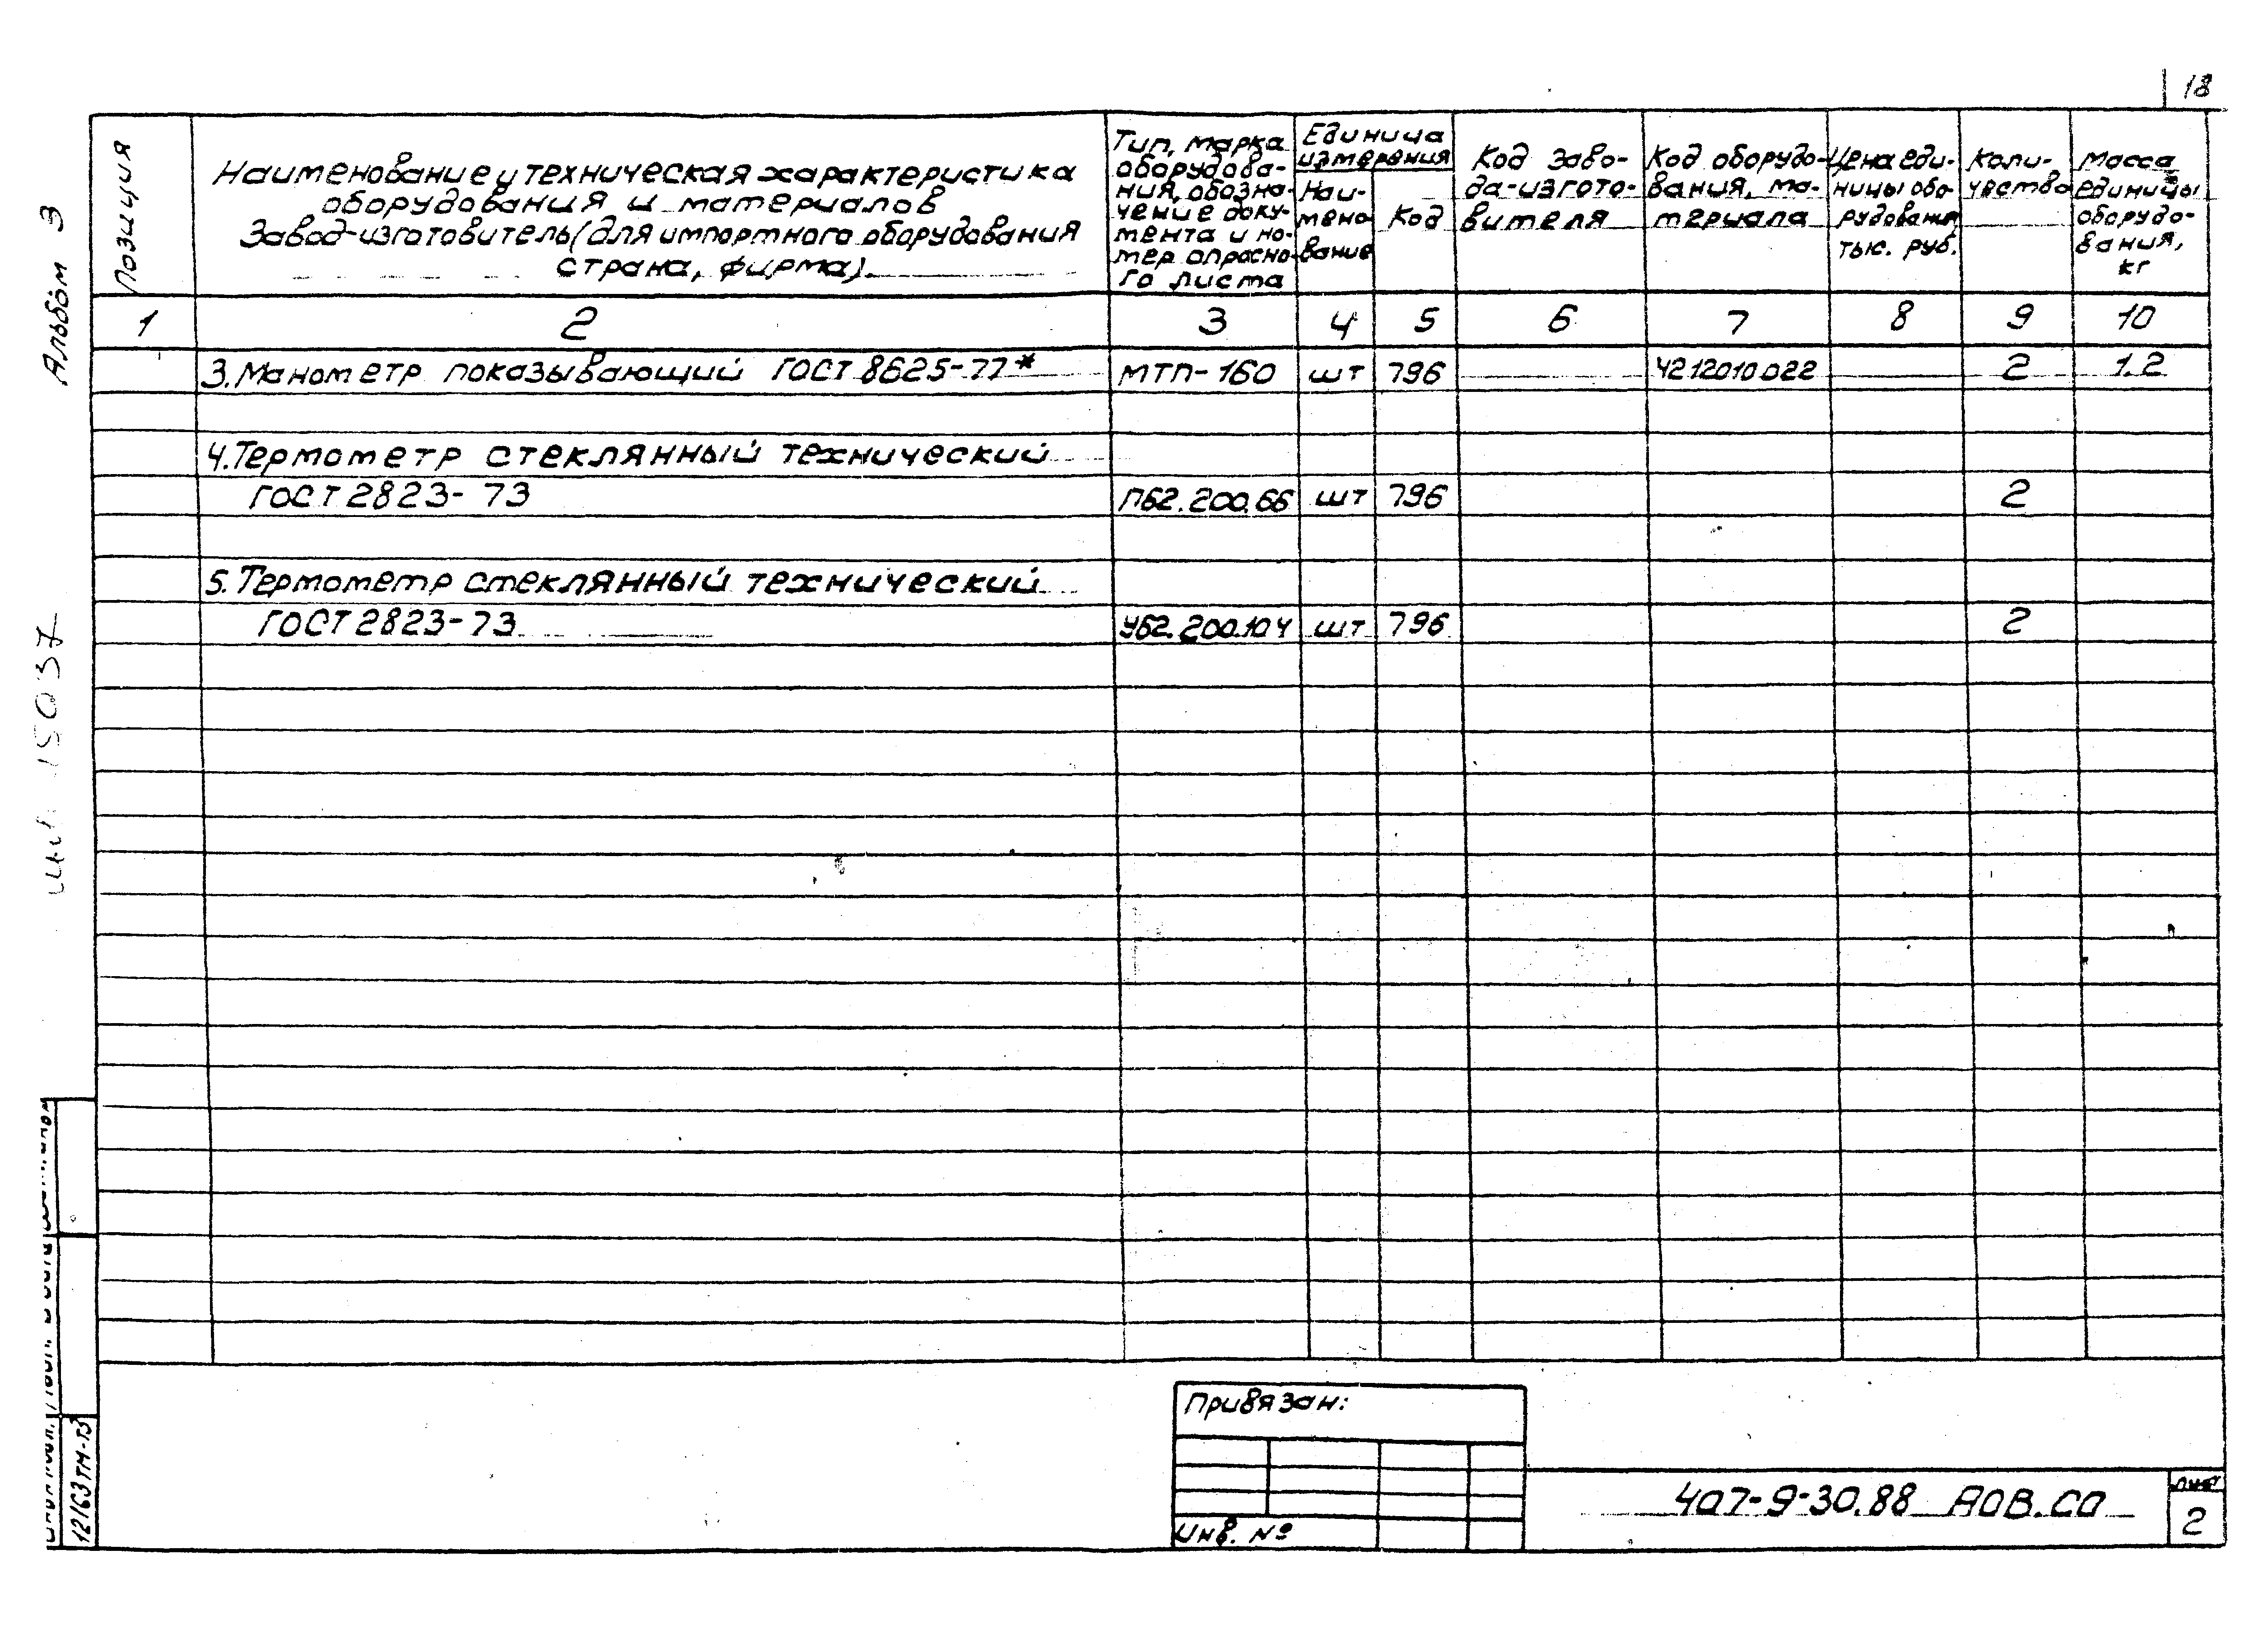 18
Альбом 3
инв. 15037
Позиция
Наименование и техническая характеристика
оборудования и материалов
Завод-изготовитель (для импортного оборудования
страна, фирма).
Тип, марка
оборудова-
ния, обозна-
чение доку-
мента и но-
мер опросно-
го листа
Единица
измерения
Наи-
мено-
вание
Код
Код заво-
да-изгото-
вителя
Код оборудо-
вания, ма-
териала
Цена еди-
ницы обо-
рудования,
тыс. руб.
Коли-
чество
Масса
единицы
оборудо-
вания,
кг
1 2 3 4 5 6 7 8 9 10
3. Манометр показывающий ГОСТ 8625-77* МТП-160 шт 796 4212010022 2 1.2
4. Термометр стеклянный технический
ГОСТ 2823-73 П62.200.66 шт 796 2
5. Термометр стеклянный технический
ГОСТ 2823-73 У62.200.104 шт 796 2
12163тм-т3
Привязан:
Инв. №
407-9-30.88 АОВ.СО
Лист
2